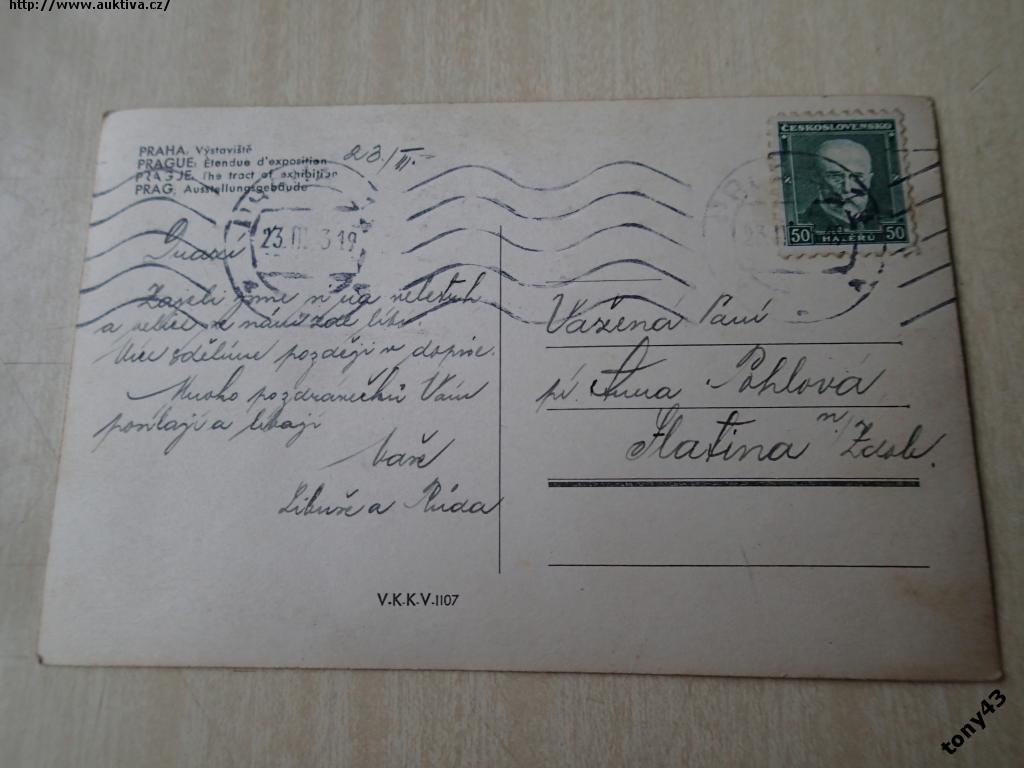 http://www.auktiva.cz/
PRAHA. Výstaviště
PRAGUE. Étendue d'exposition
PRAGUE. The tract of exhibition
PRAG. Ausstellungsgebäude
23./III.
23.III.
ČESKOSLOVENSKO
50 HALÉŘŮ 50
Drazí
Zajeli jsme na veletrh
a velice se nám zde líbí.
Více sdělíme později v dopise.
Mnoho pozdrávečků Vám
posílají a líbají
Vaše
Libuše a Růda
Vážená Paní
pí. Anna Pohlová
Slatina n/Zdob.
V.K.K.V.1107
tony43